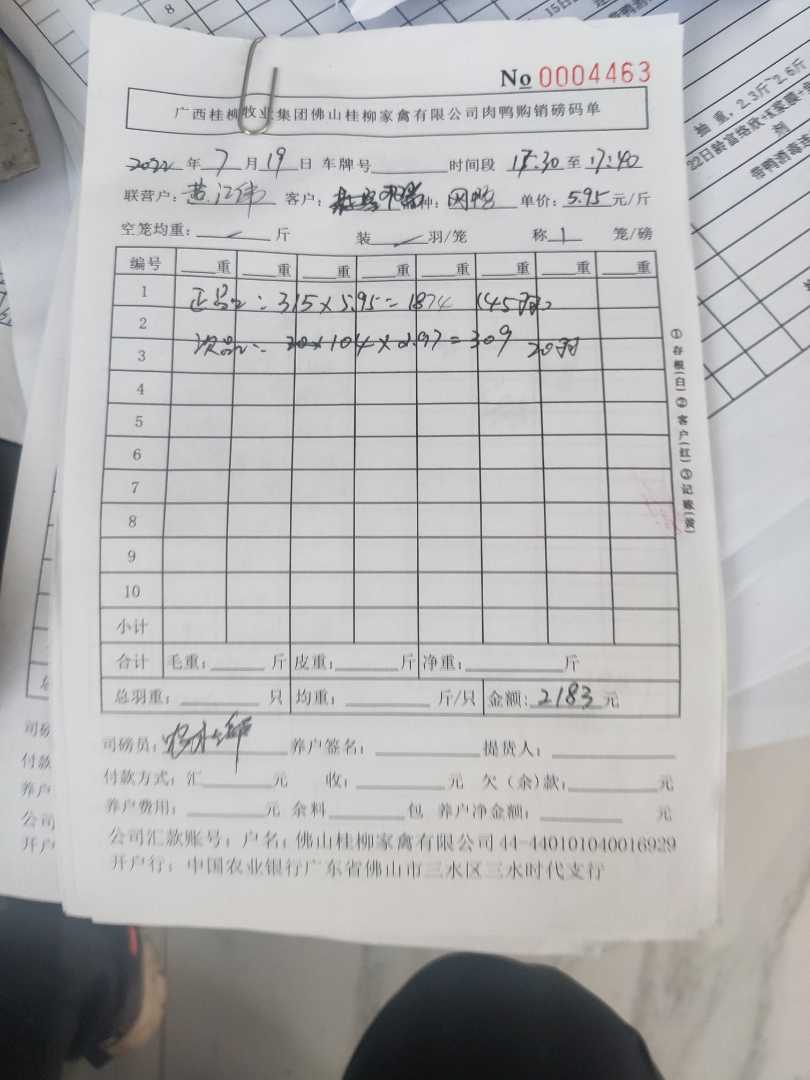 15日
8
抽重，2.3斤~2.6斤
剂
No 0004463
广西桂柳牧业集团佛山桂柳家禽有限公司肉鸭购销磅码单
2022年 7月19日 车牌号 时间段 17:30至17:40
联营户: 黄江伟 客户: 种: 单价: 5.95元/斤
空笼均重: 斤 装 羽/笼 称 1 笼/磅
编号 重 重 重 重 重 重 重 重
1 正品: 315×5.95=1874 145羽
2
3 次品: 104×2.97=309 20羽
4
5
6
7
8
9
10
小计
合计 毛重: 斤 皮重: 斤 净重: 斤
总羽重: 只 均重: 斤/只 金额: 2183元
①存根(白)②客户(红)③记账(黄)
司磅员: 养户签名: 提货人:
付款方式: 汇 元 收: 元 欠(余)款: 元
养户费用: 元 余料 包 养户净金额: 元
公司汇款账号: 户名: 佛山桂柳家禽有限公司 44-440101040016929
开户行: 中国农业银行广东省佛山市三水区三水时代支行